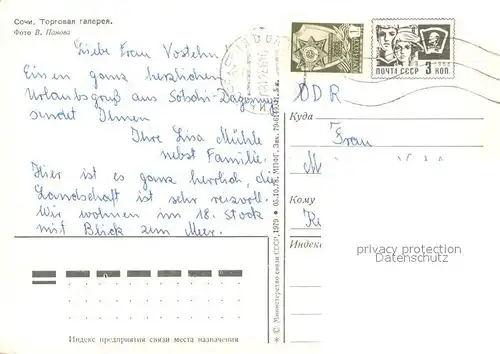 Сочи. Торговая галерея.
Фото В. Панова
Liebe Frau
Einen ganz herzlichen
Urlaubsgruß aus Sotschi-Dagomys
sendet Ihnen
Ihre Lisa Mühle
nebst Familie.
Hier ist es ganz herrlich, die
Landschaft ist sehr reizvoll.
Wir wohnen im 18. Stock
mit Blick zum Meer.
ПОЧТА СССР 3 КОП.
DDR
Куда
Frau
Кому
Индекс
privacy protection
Datenschutz
* © Министерство связи СССР, 1979 * 05.10.78. МПФГ. Зак.
Индекс предприятия связи места назначения